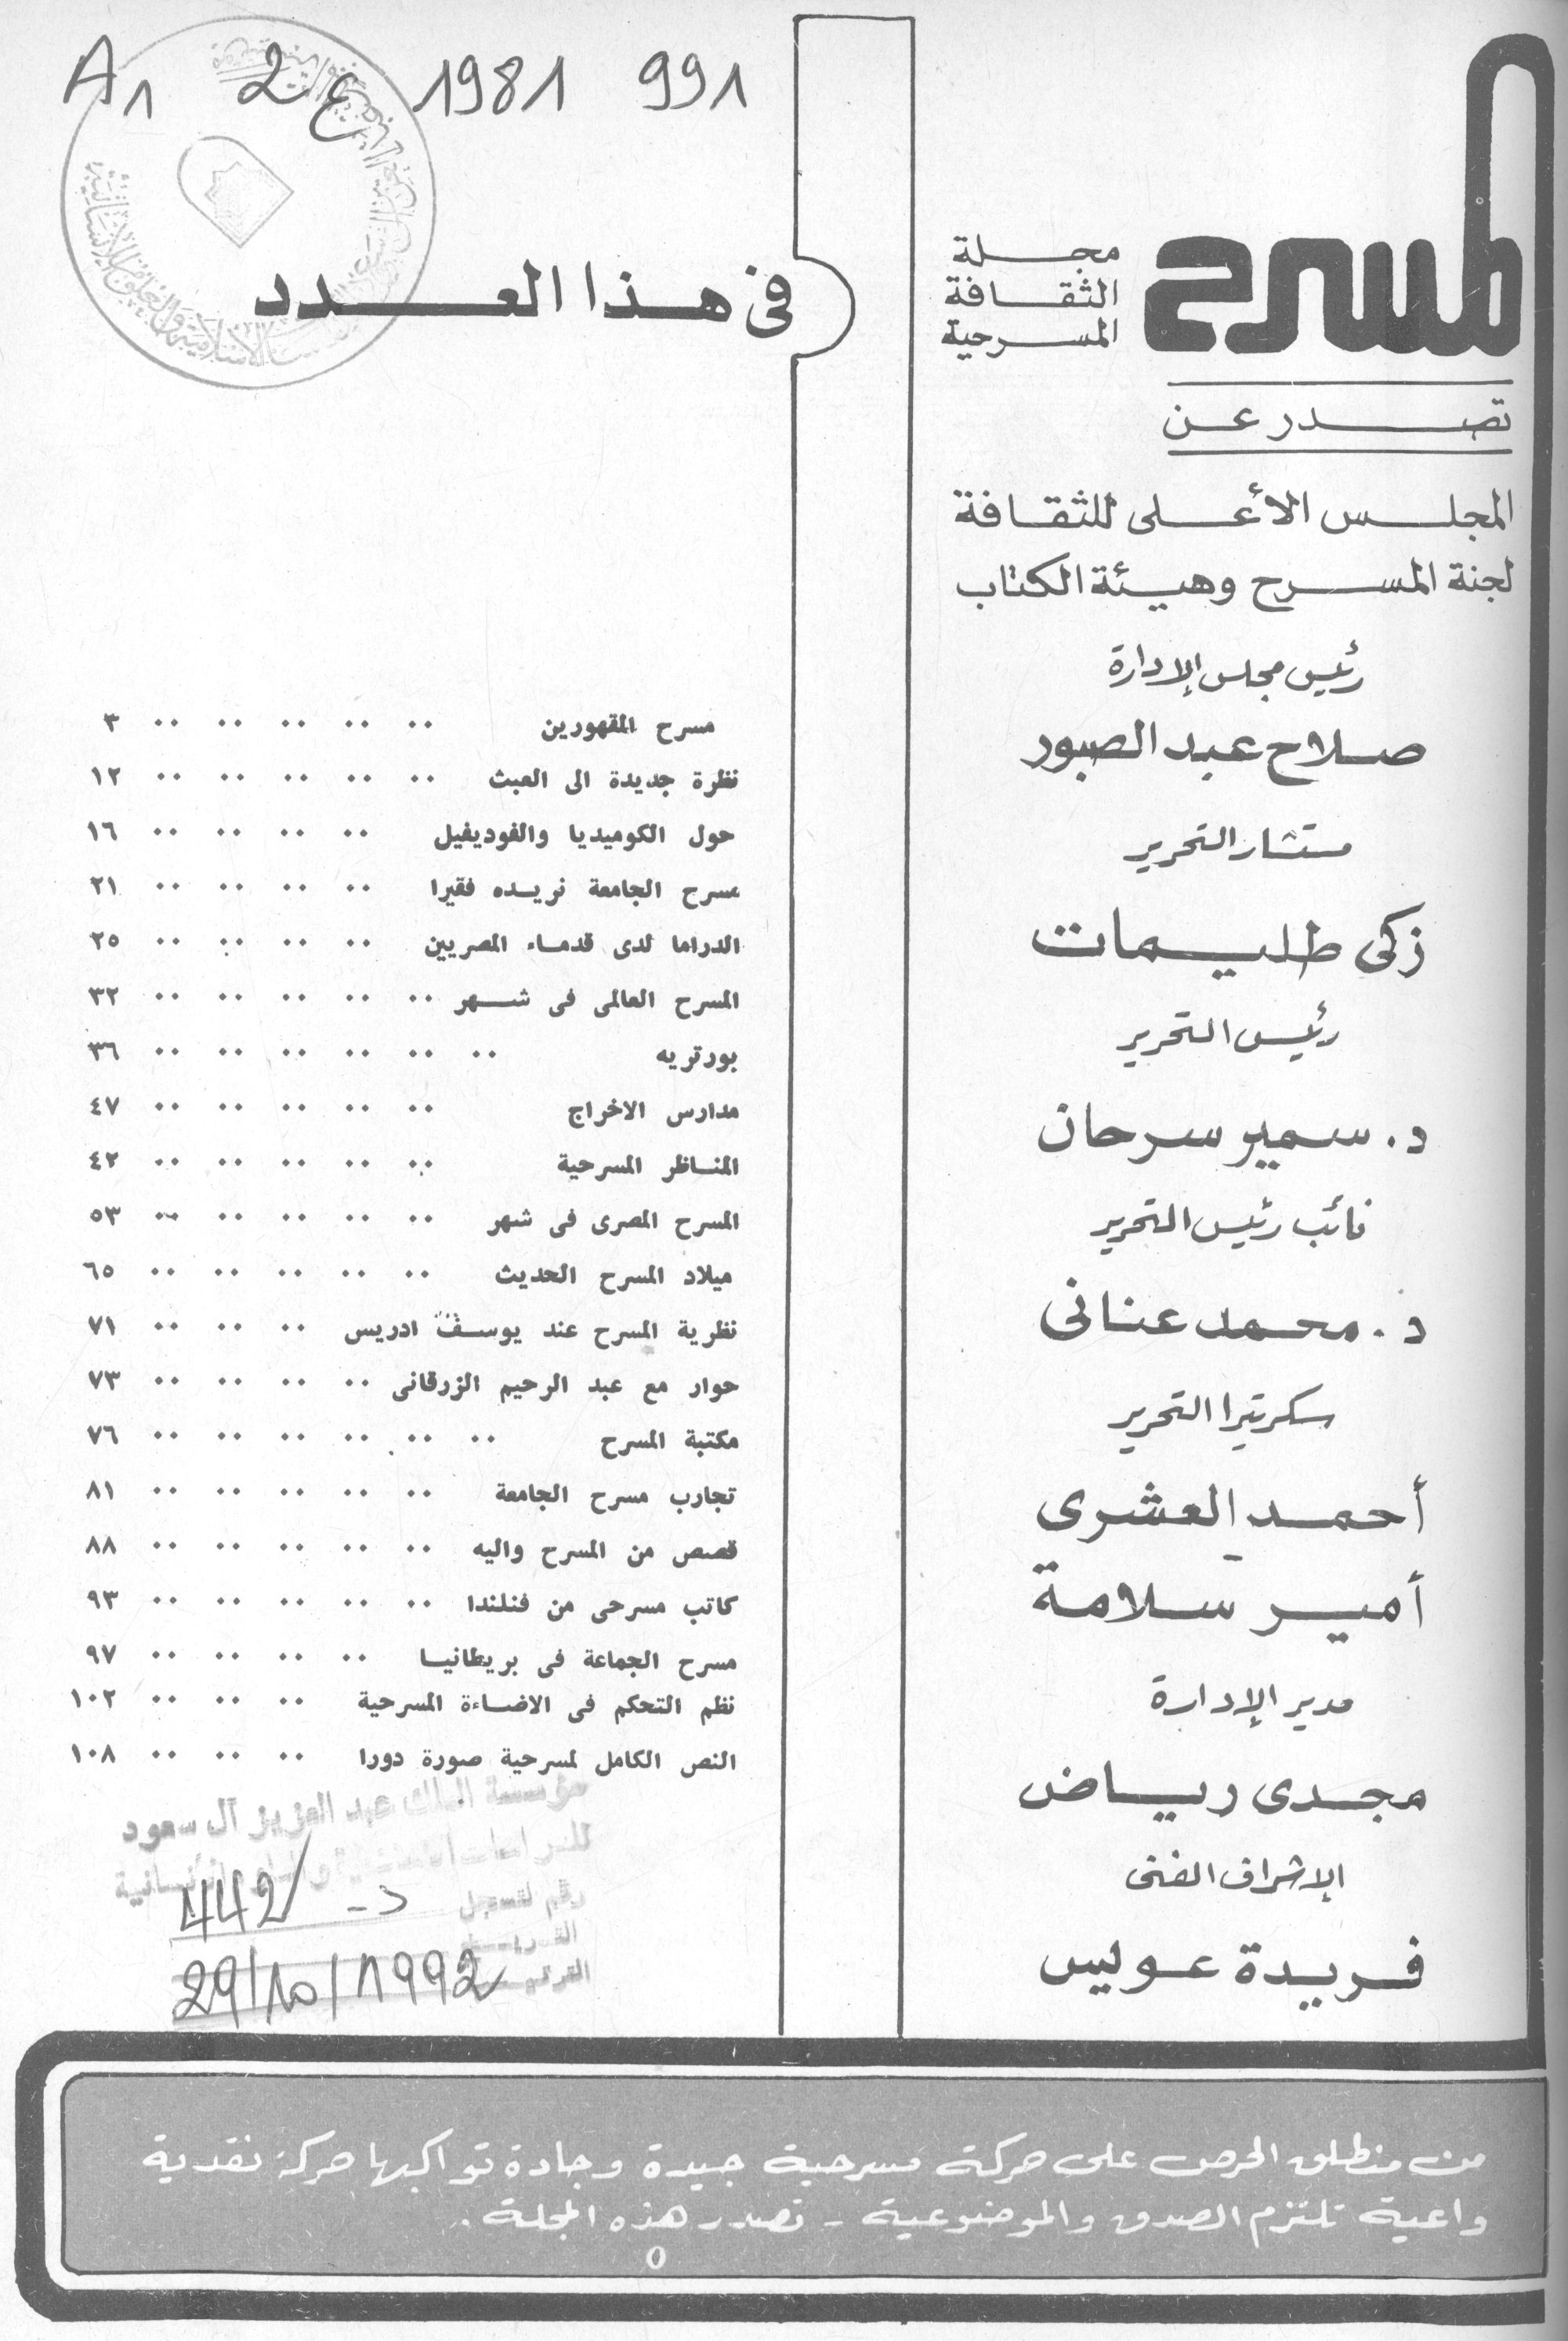 المسرح
مجلة
الثقافة
المسرحية
تصدر عن
المجلس الأعلى للثقافة
لجنة المسرح وهيئة الكتاب
رئيس مجلس الإدارة
صلاح عبد الصبور
مستشار التحرير
زكى طليمات
رئيس التحرير
د. سمير سرحان
نائب رئيس التحرير
د. محمد عنانى
سكرتيرا التحرير
أحمد العشرى
أمير سلامة
مدير الإدارة
مجدى رياض
الإشراف الفنى
فريدة عويس
A1 2ع 1981 991
فى هذا العدد
مسرح المقهورين ٣
نظرة جديدة الى العبث ١٢
حول الكوميديا والفوديفيل ١٦
مسرح الجامعة نريده فقيرا ٢١
الدراما لدى قدماء المصريين ٢٥
المسرح العالمى فى شهر ٣٢
بورتريه ٣٦
مدارس الاخراج ٤٧
المناظر المسرحية ٤٢
المسرح المصرى فى شهر ٥٣
ميلاد المسرح الحديث ٦٥
نظرية المسرح عند يوسف ادريس ٧١
حوار مع عبد الرحيم الزرقانى ٧٣
مكتبة المسرح ٧٦
تجارب مسرح الجامعة ٨١
قصص من المسرح واليه ٨٨
كاتب مسرحى من فنلندا ٩٣
مسرح الجماعة فى بريطانيا ٩٧
نظم التحكم فى الاضاءة المسرحية ١٠٢
النص الكامل لمسرحية صورة دورا ١٠٨
مؤسسة الملك عبد العزيز آل سعود
رقم التسجيل د- 442
29/10/1992
من منطلق الحرص على حركة مسرحية جيدة وجادة تواكبها حركة نقدية
واعية تلتزم الصدق والموضوعية - تصدر هذه المجلة .